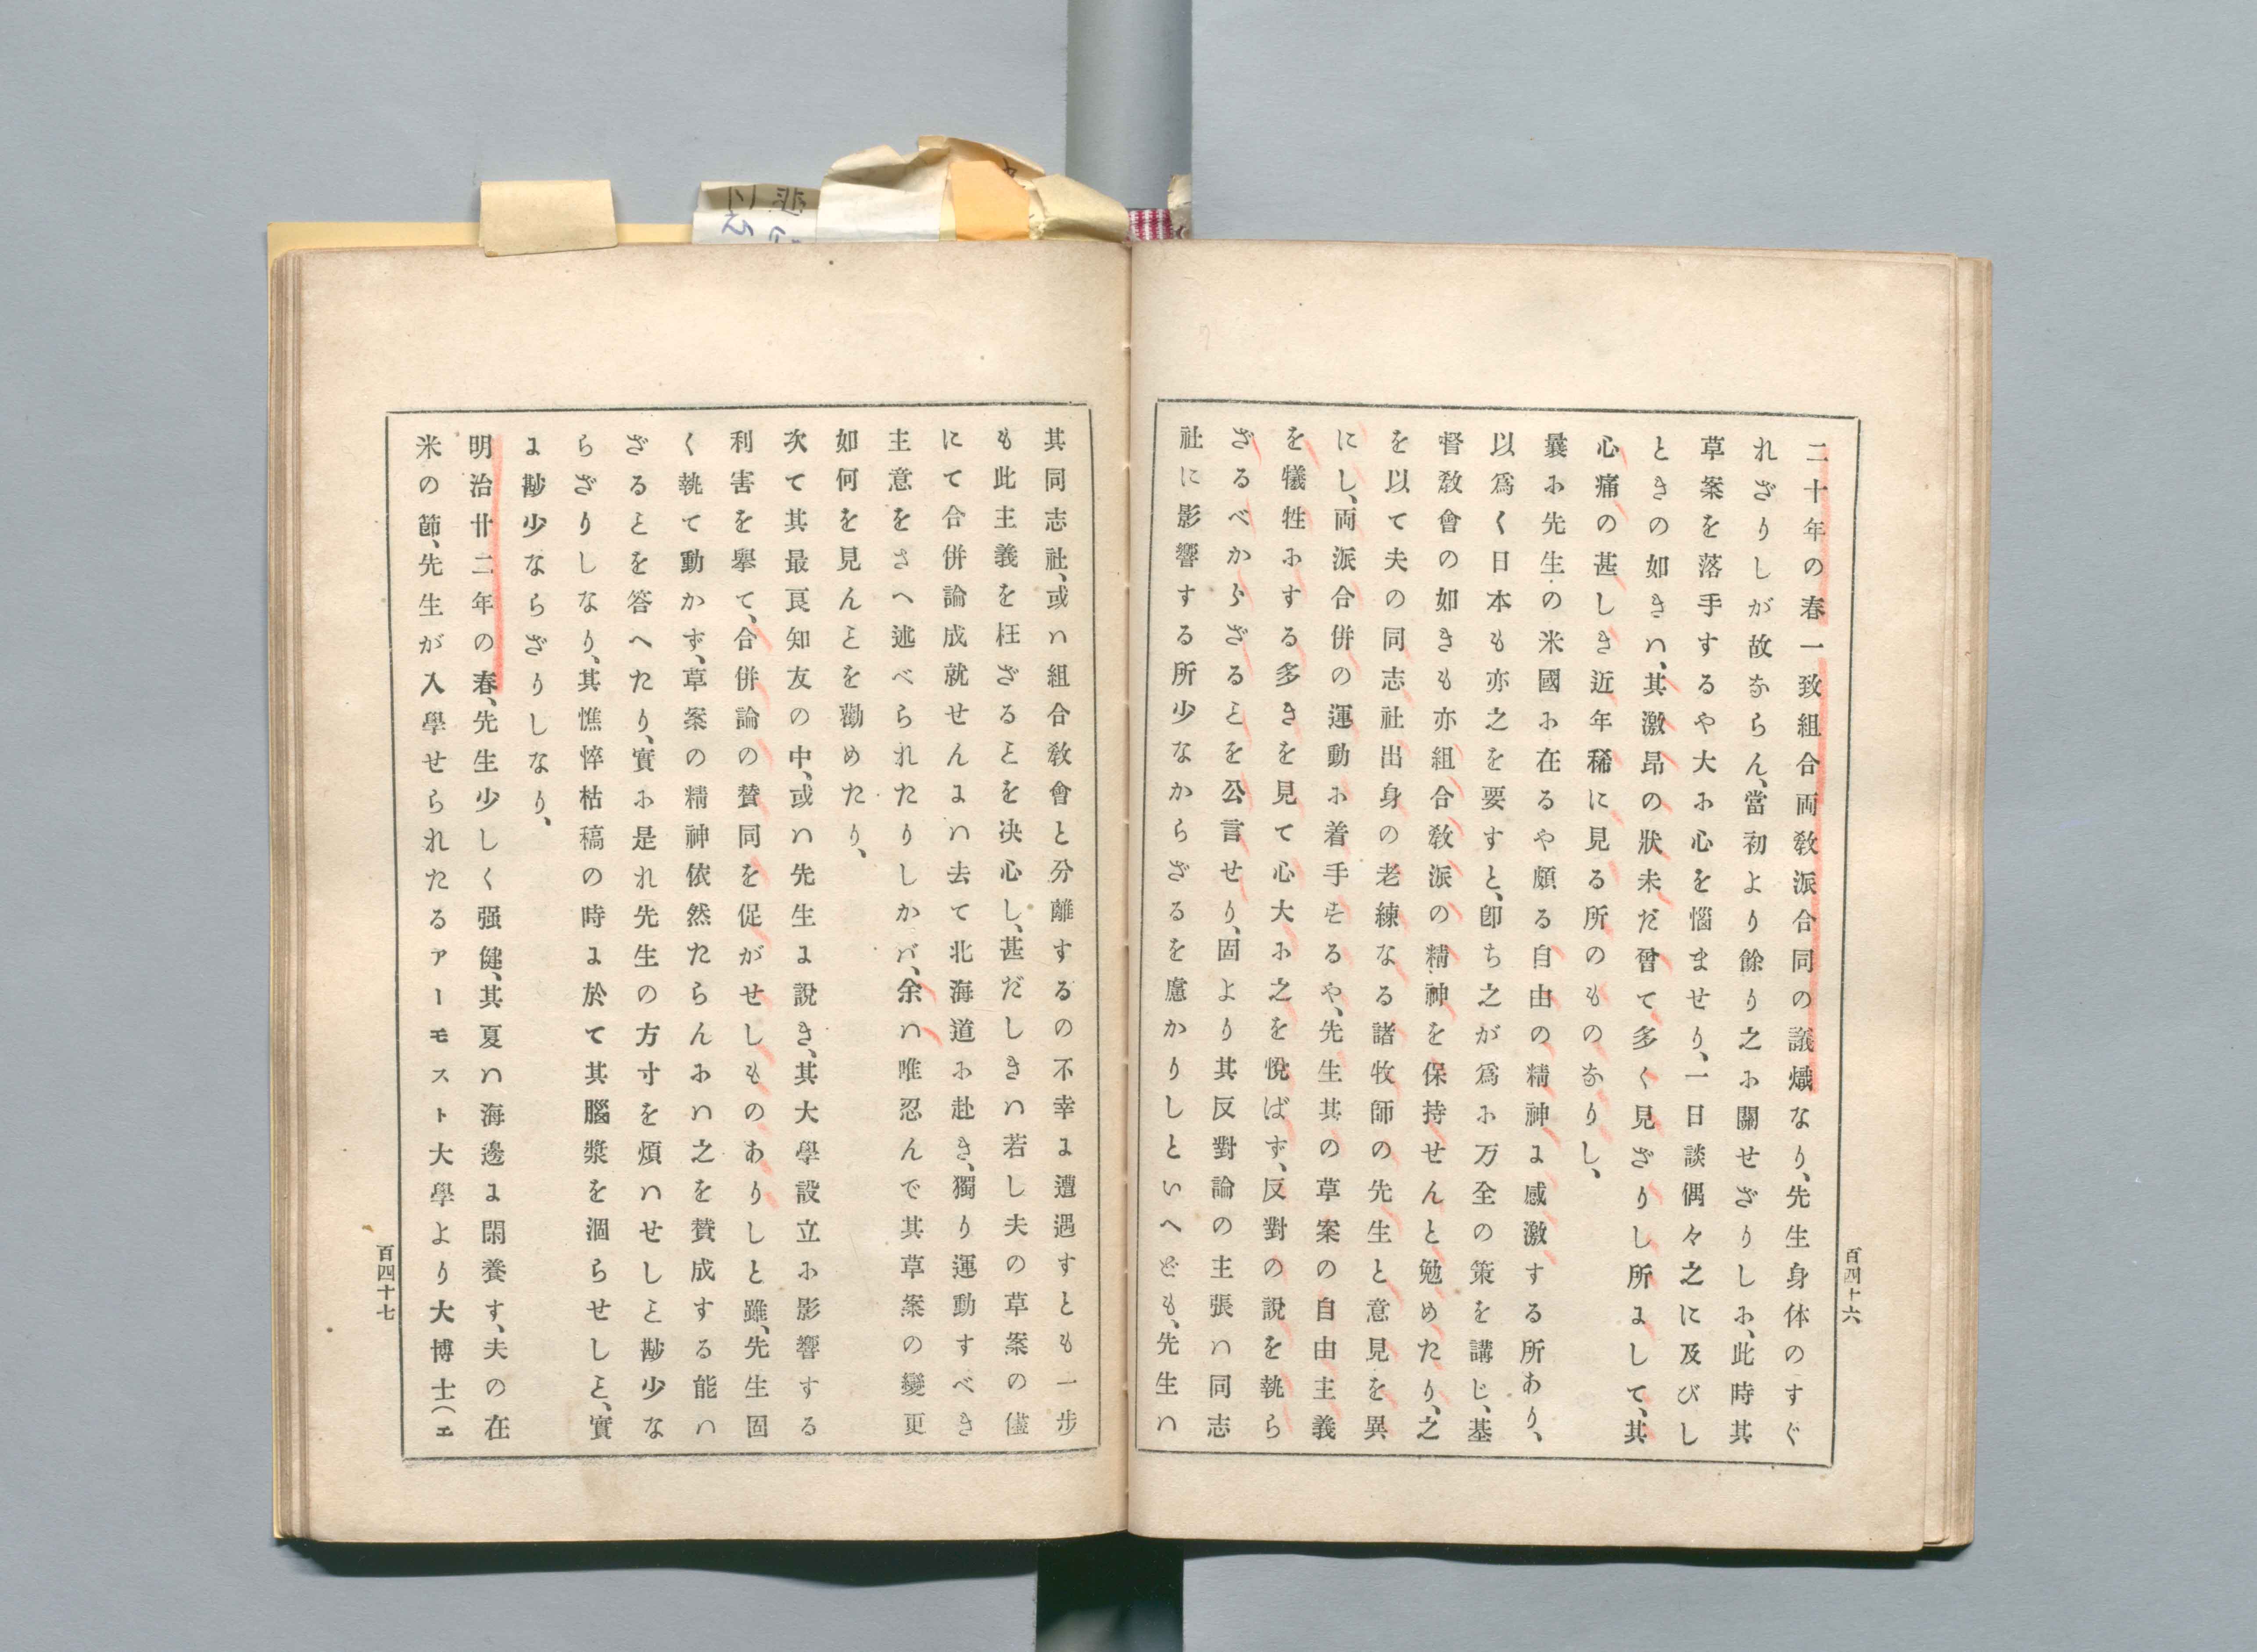 二十年の春一致組合両教派合同の議熾なり、先生身体のすぐ
れざりしが故ならん、當初より餘り之に關せざりしに、此時其
草案を落手するや大に心を惱ませり、一日談偶々之に及びし
ときの如きハ、其激昂の狀未だ曾て多く見ざりし所にして、其
心痛の甚しき近年稀に見る所のものなりし、
曩に先生の米國に在るや頗る自由の精神に感激する所あり、
以爲く日本も亦之を要すと、卽ち之が爲に万全の策を講じ、基
督教會の如きも亦組合教派の精神を保持せんと勉めたり、之
を以て夫の同志社出身の老練なる諸牧師の先生と意見を異
にし、両派合併の運動に着手せるや、先生其の草案の自由主義
を犠牲にする多きを見て心大に之を悅ばず、反對の說を執ら
ざるべからざるヿを公言せり、固より其反對論の主張ハ同志
社に影響する所少なからざるを慮かりしといへども、先生ハ
百四十六
其同志社、或ハ組合教會と分離するの不幸に遭遇すとも一步
も此主義を枉ざるヿを决心し、甚だしきハ若し夫の草案の儘
にて合併論成就せんにハ去て北海道に赴き、獨り運動すべき
主意をさへ述べられたりしかバ、余ハ唯忍んで其草案の變更
如何を見んヿを勸めたり、
次て其最良知友の中、或ハ先生に說き、其大學設立に影響する
利害を擧て、合併論の賛同を促がせしものありしと雖、先生固
く執て動かず、草案の精神依然たらんにハ之を賛成する能ハ
ざるヿを答へたり、實に是れ先生の方寸を煩ハせしヿ尠少な
らざりしなり、其憔悴枯稿の時に於て其腦漿を涸らせしヿ、實
に尠少ならざりしなり、
明治廿二年の春、先生少しく强健、其夏ハ海邊に閑養す、夫の在
米の節、先生が入學せられたるアーモスト大學より大博士（エ
百四十七